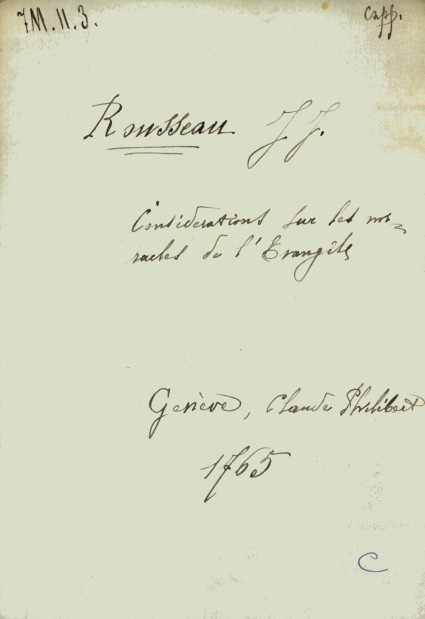 7M.11.3.
Capp.
Rousseau J J.
Considerations sur les mi-
racles de l'Evangile
Genève, Claude Philibert
1765
C